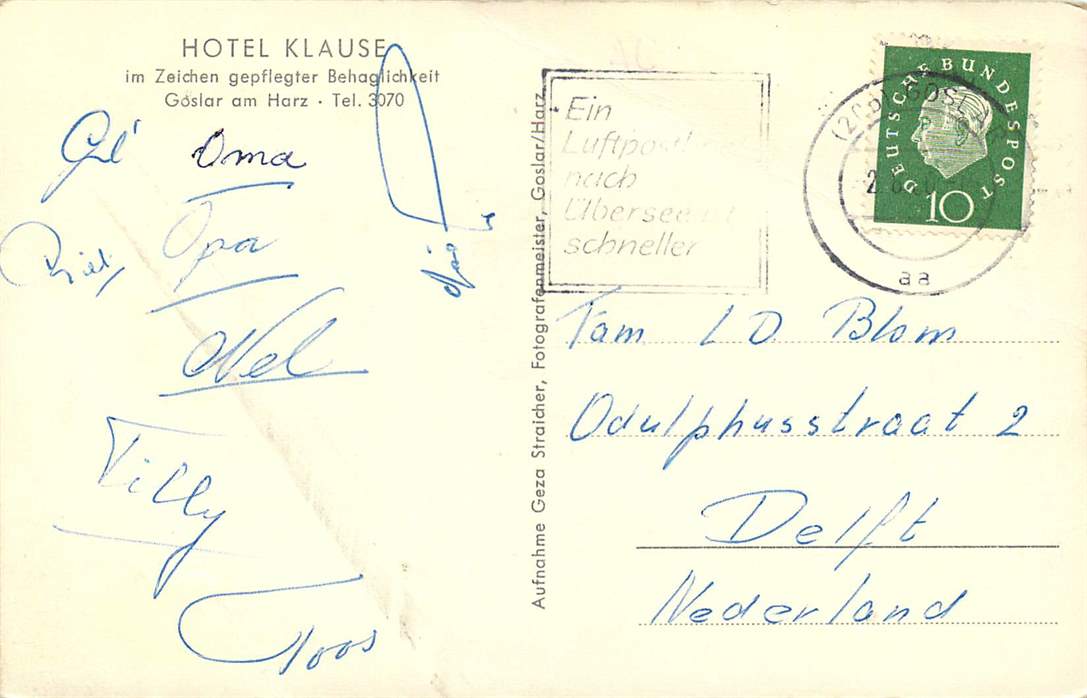 HOTEL KLAUSE
im Zeichen gepflegter Behaglichkeit
Goslar am Harz · Tel. 3070
Oma
Opa
Nel
Tilly
Toos
Aufnahme Geza Straicher, Fotografenmeister, Goslar/Harz
Ein
Luftpost
nach
Übersee
schneller
GOSLAR
aa
DEUTSCHE BUNDESPOST
10
Fam L D Blom
Odulphusstraat 2
Delft
Nederland